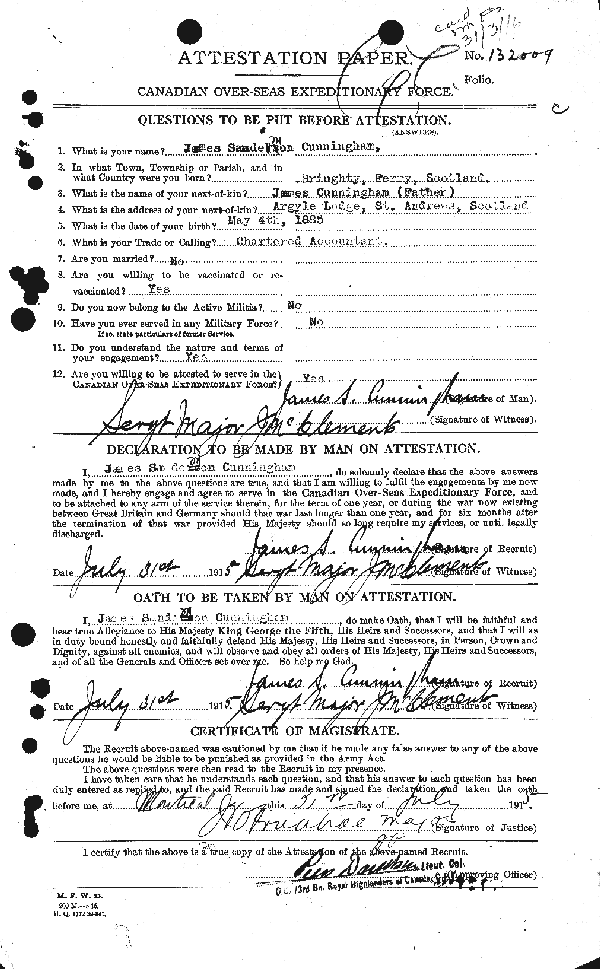 Card
31/3/16
ATTESTATION PAPER.
No. 132009
Folio.
CANADIAN OVER-SEAS EXPEDITIONARY FORCE.
C
QUESTIONS TO BE PUT BEFORE ATTESTATION.
(ANSWERS).
1. What is your name? James Sanderson Cunningham,
2. In what Town, Township or Parish, and in
what Country were you born? Bringhty, Ferry, Scotland.
3. What is the name of your next-of-kin? James Cunningham (Father)
4. What is the address of your next-of-kin? Argyle Lodge, St. Andrews, Scotland
5. What is the date of your birth? May 4th, 1885
6. What is your Trade or Calling? Chartered Accountant.
7. Are you married? No
8. Are you willing to be vaccinated or re-
vaccinated? Yes
9. Do you now belong to the Active Militia? No
10. Have you ever served in any Military Force? No
If so, state particulars of former Service.
11. Do you understand the nature and terms of
your engagement? Yes
12. Are you willing to be attested to serve in the
CANADIAN OVER-SEAS EXPEDITIONARY FORCE? Yes
James S. Cunningham (Signature of Man).
Sergt Major J McClement (Signature of Witness).
DECLARATION TO BE MADE BY MAN ON ATTESTATION.
I, James Sanderson Cunningham, do solemnly declare that the above answers
made by me to the above questions are true, and that I am willing to fulfil the engagements by me now
made, and I hereby engage and agree to serve in the Canadian Over-Seas Expeditionary Force, and
to be attached to any arm of the service therein, for the term of one year, or during the war now existing
between Great Britain and Germany should that war last longer than one year, and for six months after
the termination of that war provided His Majesty should so long require my services, or until legally
discharged.
James S. Cunningham (Signature of Recruit)
Date July 31st 1915 Sergt Major J McClement (Signature of Witness)
OATH TO BE TAKEN BY MAN ON ATTESTATION.
I, James Sanderson Cunningham, do make Oath, that I will be faithful and
bear true Allegiance to His Majesty King George the Fifth, His Heirs and Successors, and that I will as
in duty bound honestly and faithfully defend His Majesty, His Heirs and Successors, in Person, Crown and
Dignity, against all enemies, and will observe and obey all orders of His Majesty, His Heirs and Successors,
and of all the Generals and Officers set over me. So help my God.
James S. Cunningham (Signature of Recruit)
Date July 31st 1915 Sergt Major J McClement (Signature of Witness)
CERTIFICATE OF MAGISTRATE.
The Recruit above-named was cautioned by me that if he made any false answer to any of the above
questions he would be liable to be punished as provided in the Army Act.
The above questions were then read to the Recruit in my presence.
I have taken care that he understands each question, and that his answer to each question has been
duly entered as replied to, and the said Recruit has made and signed the declaration and taken the oath
before me, at Montreal this 31st day of July 1915
Major (Signature of Justice)
I certify that the above is a true copy of the Attestation of the above-named Recruit.
Lieut. Col. (Approving Officer)
O.C. 73rd Bn. Royal Highlanders of Canada
M. F. W. 23.